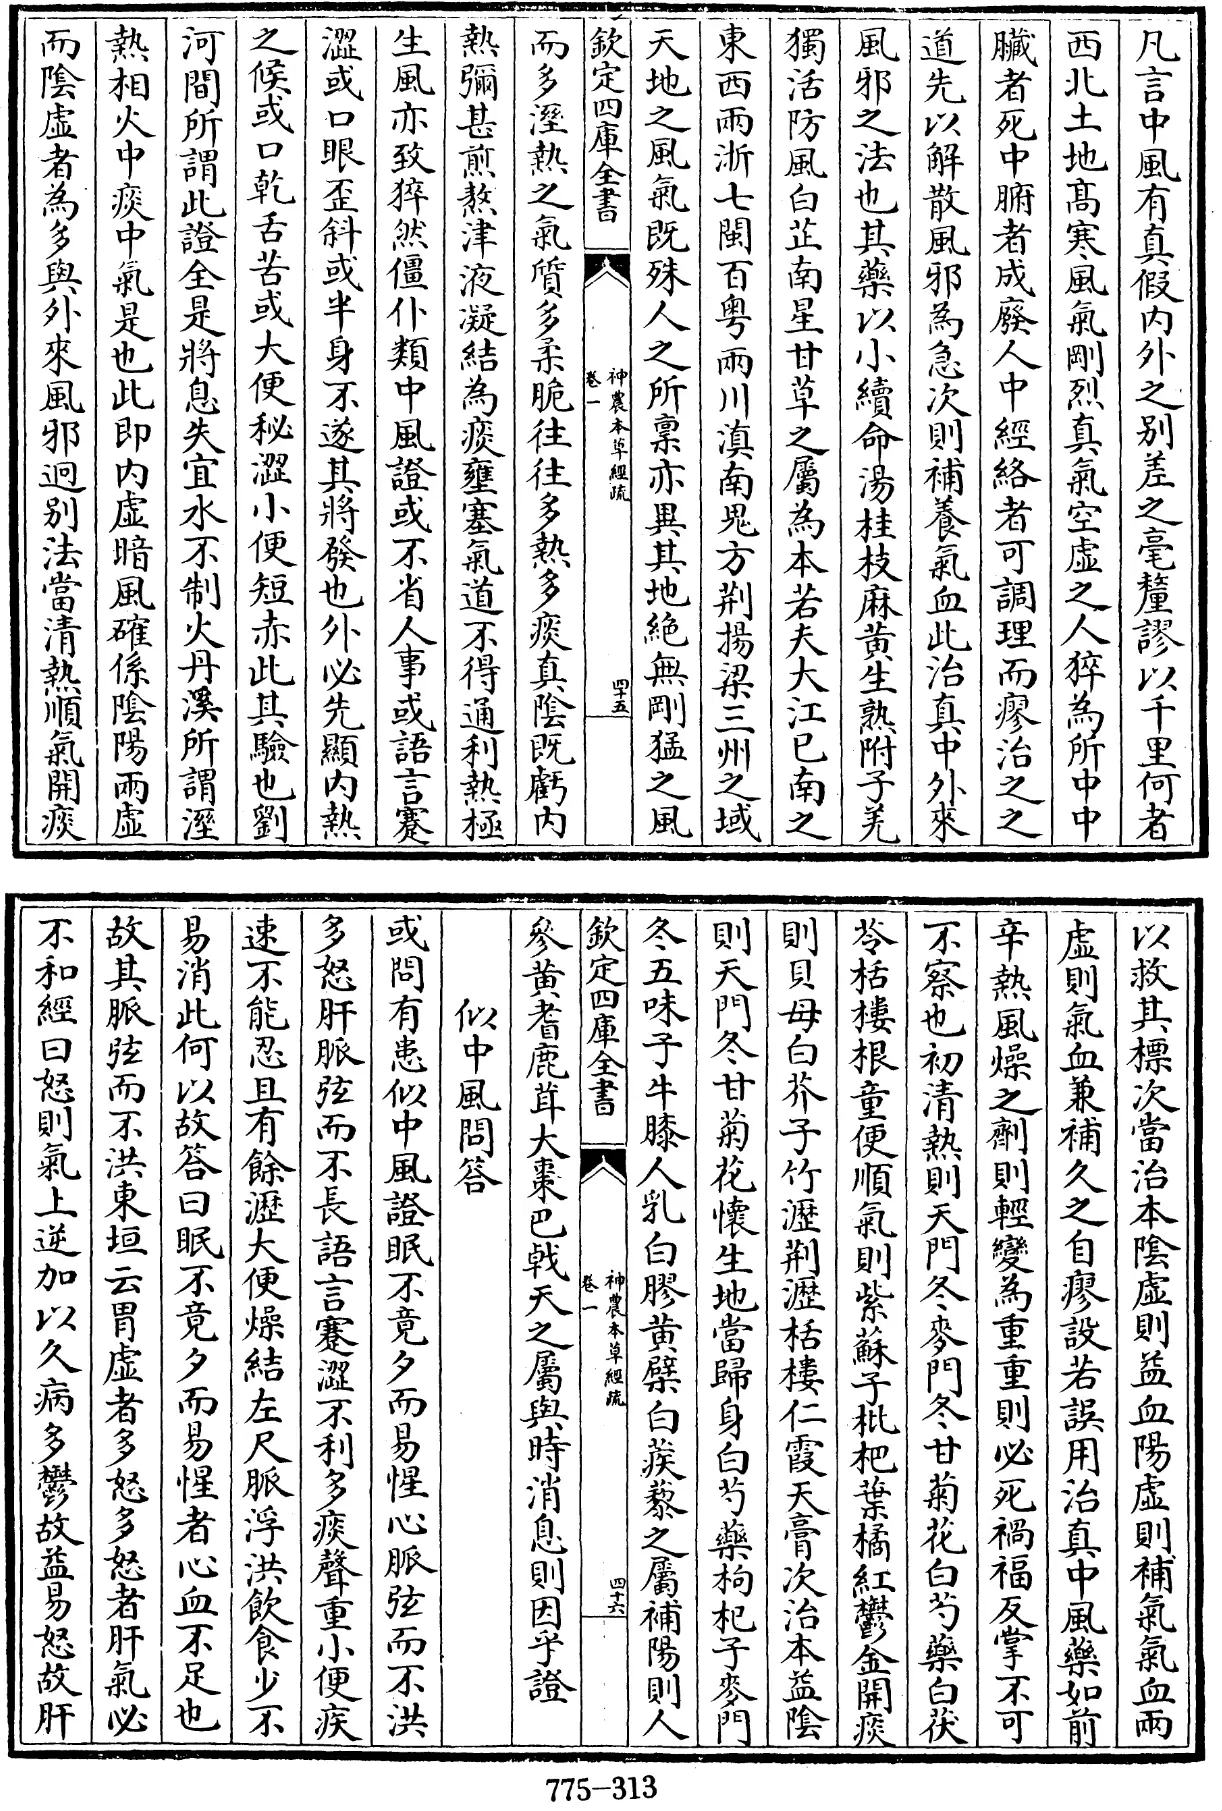 凡言中風有真假内外之别差之毫釐謬以千里何者
西北土地髙寒風氣剛烈真氣空虚之人猝為所中中
臟者死中腑者成廢人中經絡者可調理而瘳治之之
道先以解散風邪為急次則補養氣血此治真中外來
風邪之法也其藥以小續命湯桂枝麻黄生熟附子羌
獨活防風白芷南星甘草之屬為本若夫大江已南之
東西兩浙七閩百粤兩川滇南鬼方荆揚梁三州之域
天地之風氣既殊人之所禀亦異其地絶無剛猛之風
欽定四庫全書
神農本草經疏
卷一
四十五
而多溼熱之氣質多柔脆往往多熱多痰真陰既虧内
熱彌甚煎熬津液凝結為痰壅塞氣道不得通利熱極
生風亦致猝然僵仆類中風證或不省人事或語言蹇
澀或口眼歪斜或半身不遂其將發也外必先顯内熱
之候或口乾舌苦或大便秘澀小便短赤此其驗也劉
河間所謂此證全是將息失宜水不制火丹溪所謂溼
熱相火中痰中氣是也此即内虚暗風確係陰陽兩虚
而陰虚者為多與外來風邪迥别法當清熱順氣開痰
以救其標次當治本陰虚則益血陽虚則補氣氣血兩
虚則氣血兼補久之自瘳設若誤用治真中風藥如前
辛熱風燥之劑則輕變為重重則必死禍福反掌不可
不察也初清熱則天門冬麥門冬甘菊花白芍藥白茯
苓栝樓根童便順氣則紫蘇子枇杷葉橘紅鬱金開痰
則貝母白芥子竹瀝荆瀝栝樓仁霞天膏次治本益陰
則天門冬甘菊花懷生地當歸身白芍藥枸杞子麥門
冬五味子牛膝人乳白膠黄檗白蒺藜之屬補陽則人
欽定四庫全書
神農本草經疏
卷一
四十六
參黄耆鹿茸大棗巴戟天之屬與時消息則因乎證
似中風問答
或問有患似中風證眠不竟夕而易惺心脈弦而不洪
多怒肝脈弦而不長語言蹇澀不利多痰聲重小便疾
速不能忍且有餘瀝大便燥結左尺脈浮洪飲食少不
易消此何以故答曰眠不竟夕而易惺者心血不足也
故其脈弦而不洪東垣云胃虚者多怒多怒者肝氣必
不和經曰怒則氣上逆加以久病多鬱故益易怒故肝
775-313